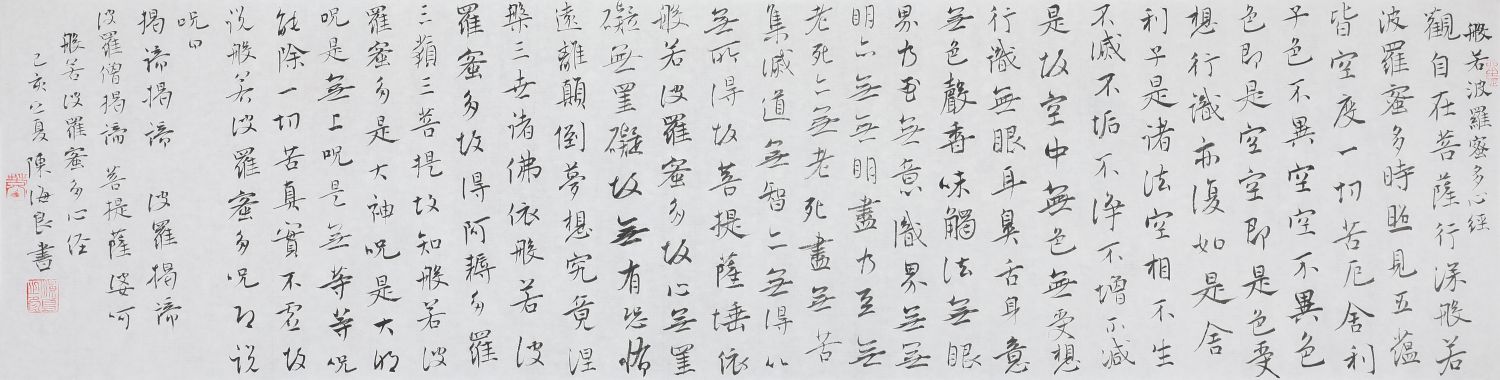 般若波羅蜜多心經
觀自在菩薩行深般若
波羅蜜多時照見五蘊
皆空度一切苦厄舍利
子色不異空空不異色
色即是空空即是色受
想行識亦復如是舍
利子是諸法空相不生
不滅不垢不淨不增不減
是故空中無色無受想
行識無眼耳鼻舌身意
無色聲香味觸法無眼
界乃至無意識界無無
明亦無無明盡乃至無
老死亦無老死盡無苦
集滅道無智亦無得以
無所得故菩提薩埵依
般若波羅蜜多故心無罣
礙無罣礙故無有恐怖
遠離顛倒夢想究竟涅
槃三世諸佛依般若波
羅蜜多故得阿耨多羅
三藐三菩提故知般若波
羅蜜多是大神呪是大明
呪是無上呪是無等等呪
能除一切苦真實不虛故
说般若波羅蜜多呪即说
呪曰
揭諦揭諦 波羅揭諦
波羅僧揭諦 菩提薩婆呵
般若波羅蜜多心经
己亥之夏陳海良書